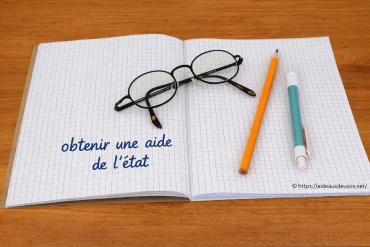 obtenir une aide
de l'état
© https://aideauxdevoirs.net/